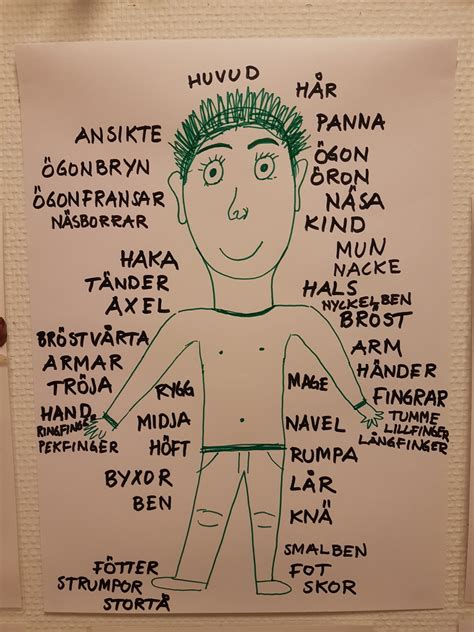 HUVUD
HÅR
ANSIKTE
PANNA
ÖGONBRYN
ÖGON
ÖGONFRANSAR
ÖRON
NÄSBORRAR
NÄSA
KIND
MUN
HAKA
NACKE
TÄNDER
HALS
AXEL
NYCKELBEN
BRÖST
BRÖSTVÅRTA
ARM
ARMAR
HÄNDER
TRÖJA
RYGG
MAGE
FINGRAR
HAND
TUMME
RINGFINGER
MIDJA
NAVEL
LILLFINGER
PEKFINGER
HÖFT
LÅNGFINGER
RUMPA
BYXOR
LÅR
BEN
KNÄ
SMALBEN
FÖTTER
FOT
STRUMPOR
SKOR
STORTÅ